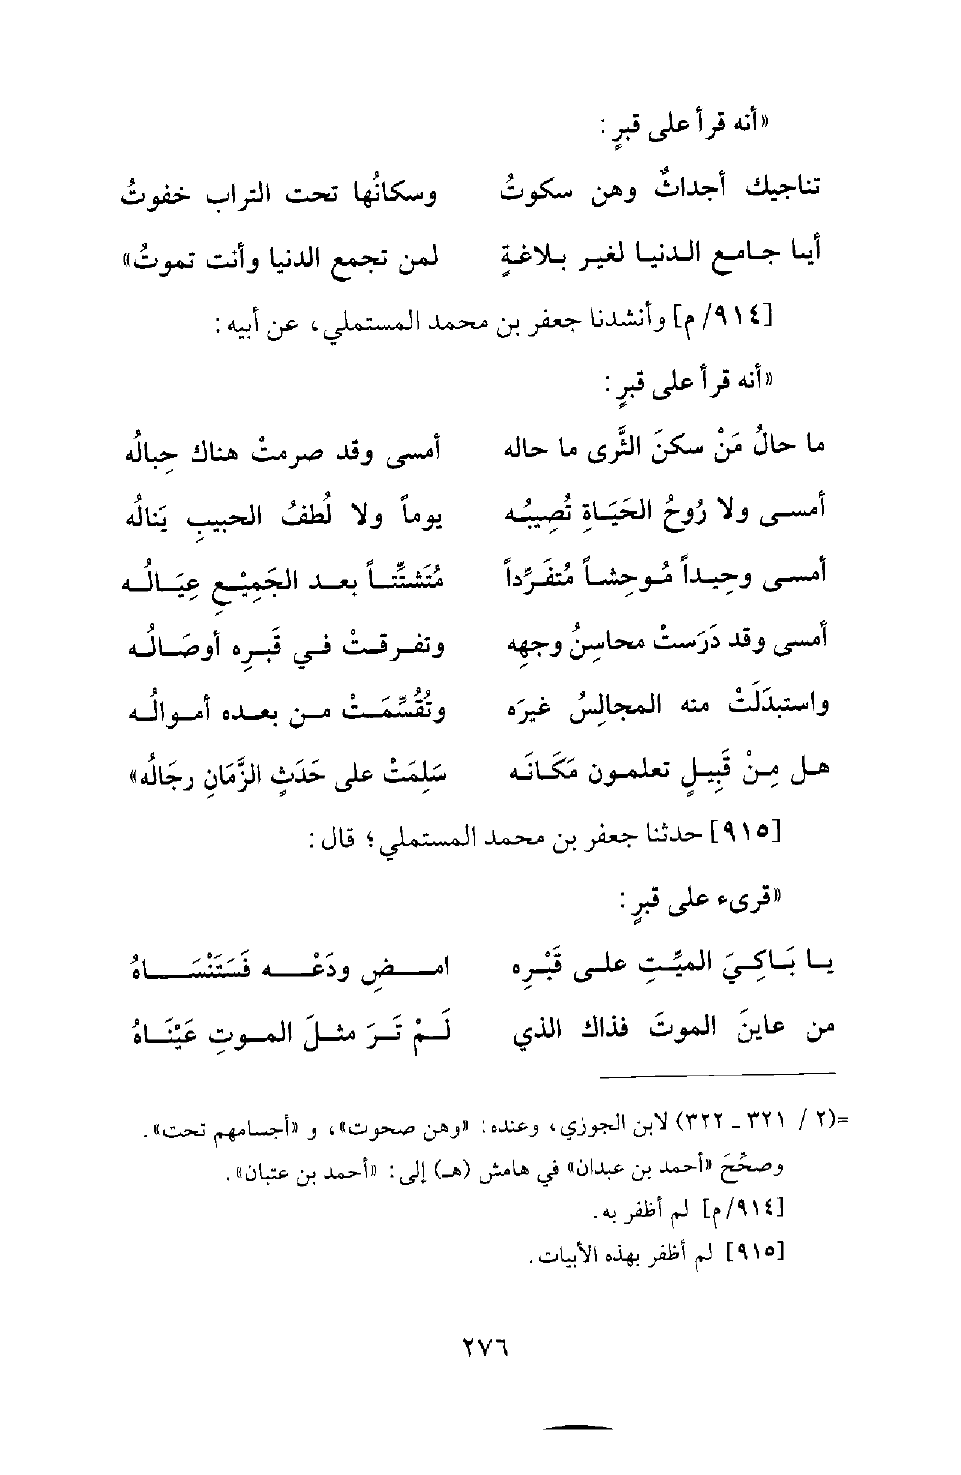 «أنه قرأ على قبرٍ :
تناجيك أجداثٌ وهن سكوتُ وسكانُها تحت التراب خفوتُ
أيا جامع الدنيا لغير بلاغةٍ لمن تجمع الدنيا وأنت تموتُ»
[٩١٤/م] وأنشدنا جعفر بن محمد المستملي، عن أبيه :
«أنه قرأ على قبرٍ :
ما حالُ مَنْ سكنَ الثَّرى ما حاله أمسى وقد صرمتْ هناك حِبالُه
أمسى ولا رُوحُ الحَيَاةِ تُصِيبُه يوماً ولا لُطفُ الحبيبِ يَنالُه
أمسى وحيداً مُوحشاً مُتفَرِّداً مُتَشتِّتاً بعد الجَمِيْعِ عِيَالُه
أمسى وقد دَرَستْ محاسِنُ وجهِه وتفرقتْ في قَبرِه أوصَالُه
واستبدَلَتْ منه المجالسُ غيرَه وتُقُسِّمَتْ من بعده أموالُه
هل مِنْ قَبِيلٍ تعلمون مَكَانَه سَلِمَتْ على حَدَثِ الزَّمَانِ رِجَالُه»
[٩١٥] حدثنا جعفر بن محمد المستملي؛ قال :
«قرىء على قبرٍ :
يا بَاكِيَ الميِّتِ على قَبْرِه امضِ ودَعْه فَسَتَنْسَاهُ
من عاينَ الموتَ فذاك الذي لَمْ تَرَ مثلَ الموتِ عَيْنَاهُ
=(٢ / ٣٢١ ـ ٣٢٢) لابن الجوزي، وعنده: «وهن صحوت»، و «أجسامهم تحت».
وصحِّحَ «أحمد بن عبدان» في هامش (هـ) إلى: «أحمد بن عتبان».
[٩١٤/م] لم أظفر به.
[٩١٥] لم أظفر بهذه الأبيات.
٢٧٦